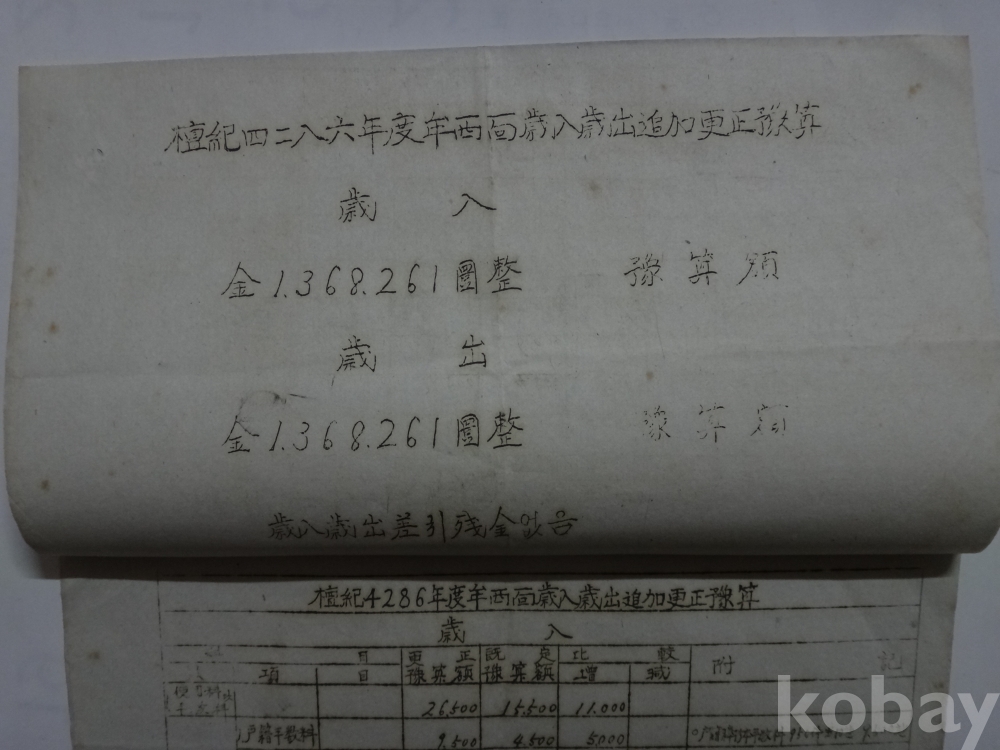 檀紀四二八六年度年西面歲入歲出追加更正豫算
歲 入
金1.368.261圜整 豫算額
歲 出
金1.368.261圜整 豫算額
歲入歲出差引残金없음
檀紀4286年度年西面歲入歲出追加更正豫算
歲 入
目 更正 既定 比較 附記
項 目 豫算額 豫算額 增 減
26.500 15.500 11.000
戶籍手数料 9.500 4.500 5000
kobay